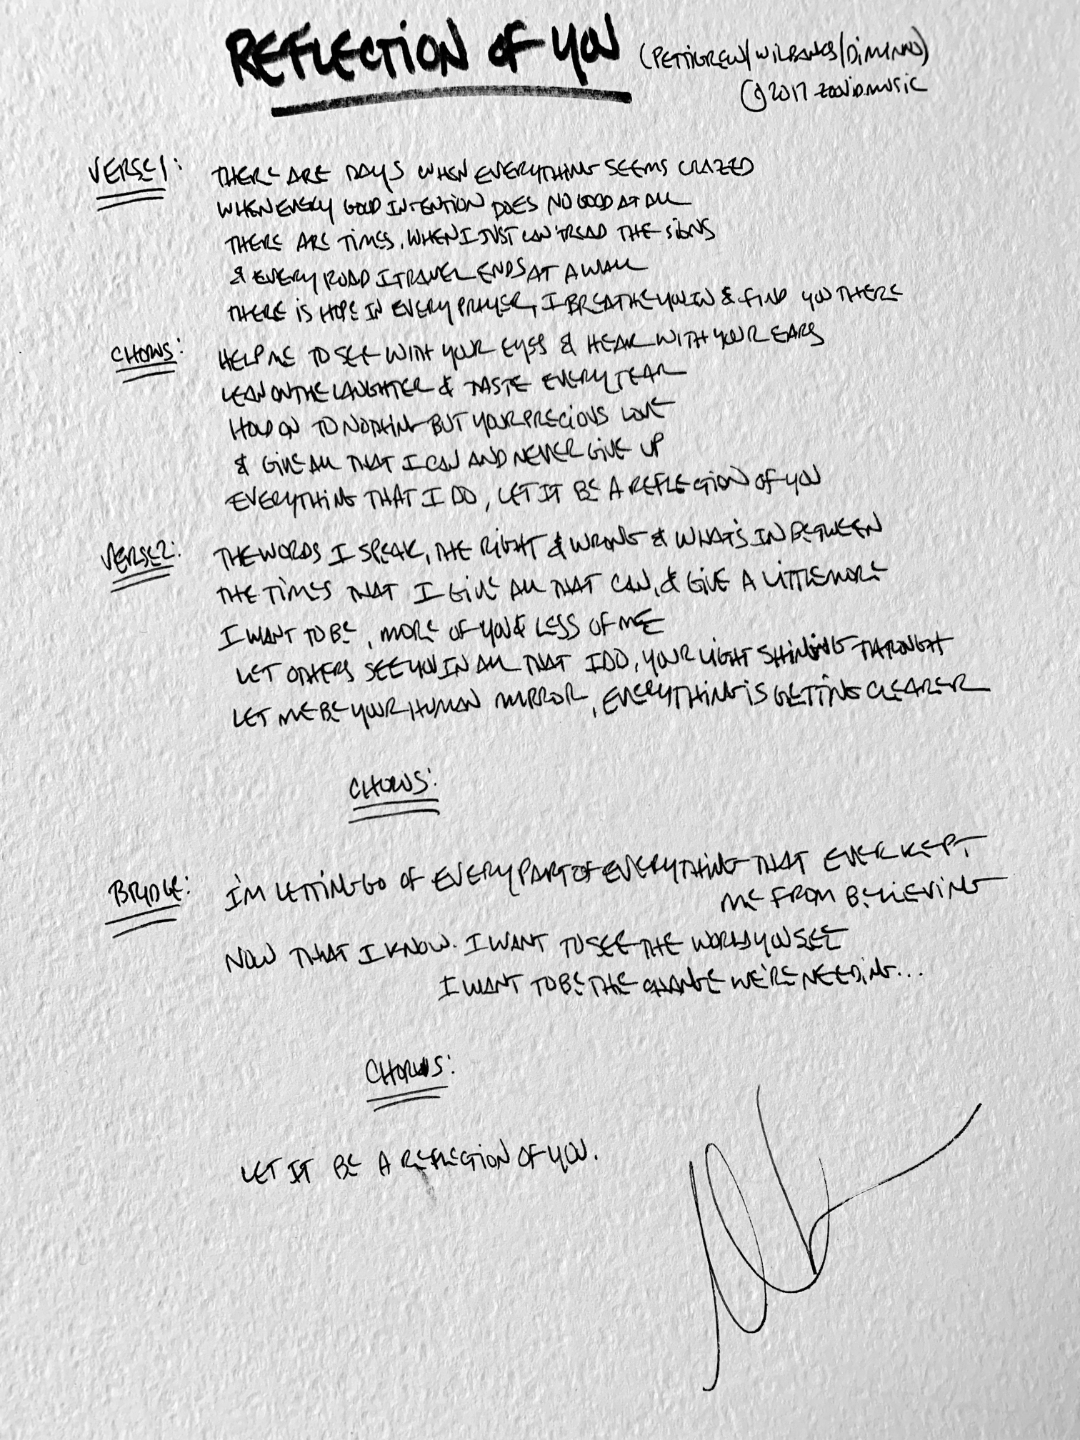 REFLECTION OF YOU (PETTIGREW/WILBANKS/DIMINNO)
© 2017 music
VERSE 1: THERE ARE DAYS WHEN EVERYTHING SEEMS CRAZED
WHEN EVERY GOOD INTENTION DOES NO GOOD AT ALL
THERE ARE TIMES, WHEN I JUST CAN'T READ THE SIGNS
& EVERY ROAD I TRAVEL ENDS AT A WALL
THERE IS HOPE IN EVERY PRAYER, I BREATHE YOU IN & FIND YOU THERE
CHORUS: HELP ME TO SEE WITH YOUR EYES & HEAR WITH YOUR EARS
LEAN ON THE LAUGHTER & TASTE EVERY TEAR
HOLD ON TO NOTHING BUT YOUR PRECIOUS LOVE
& GIVE ALL THAT I CAN AND NEVER GIVE UP
EVERYTHING THAT I DO, LET IT BE A REFLECTION OF YOU
VERSE 2: THE WORDS I SPEAK, THE RIGHT & WRONG & WHAT'S IN BETWEEN
THE TIMES THAT I GIVE ALL THAT CAN, & GIVE A LITTLE MORE
I WANT TO BE, MORE OF YOU & LESS OF ME
LET OTHERS SEE YOU IN ALL THAT I DO, YOUR LIGHT SHINING THROUGH
LET ME BE YOUR HUMAN MIRROR, EVERYTHING IS GETTING CLEARER
CHORUS:
BRIDGE: I'M LETTING GO OF EVERY PART OF EVERYTHING THAT EVER KEPT
ME FROM BELIEVING
NOW THAT I KNOW. I WANT TO SEE THE WORLD YOU SEE
I WANT TO BE THE CHANGE WE'RE NEEDING...
CHORUS:
LET IT BE A REFLECTION OF YOU.